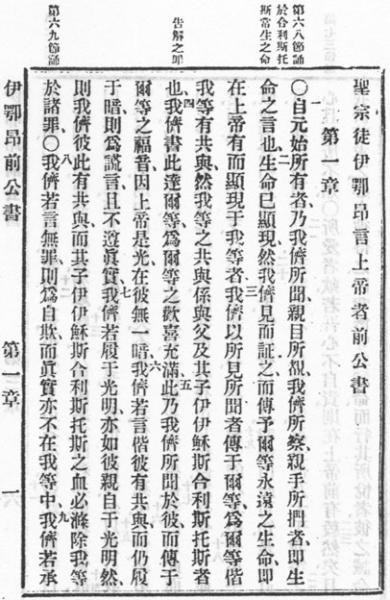 第六八節誦
於合利斯托
斯常生之命
告解之罪
第六九節誦
聖宗徒伊鄂昂言上帝者前公書
第一章
〇一自元始所有者乃我儕所聞親目所覩我儕所察親手所捫者即生
命之言也二生命已顯現然我儕見而証之而傳予爾等永遠之生命即
在上帝有而顯現于我等者三我儕以所見所聞者傳于爾等爲爾等偕
我等有共與然我等之共與係與父及其子伊伊穌斯合利斯托斯者
也四我儕書此達爾等爲爾等之歡喜充滿五此乃我儕所聞於彼而傳于
爾等之福音因上帝是光在彼無一暗六我儕若言偕彼有共與而仍履
于暗則爲謊言且不遵眞實七我儕若履于光明亦如彼親自于光明然
則我儕彼此有共與而其子伊伊穌斯合利斯托斯之血必滌除我等
於諸罪〇八我儕若言無罪則爲自欺而眞實亦不在我等中九我儕若承
伊鄂昂前公書 第一章 一